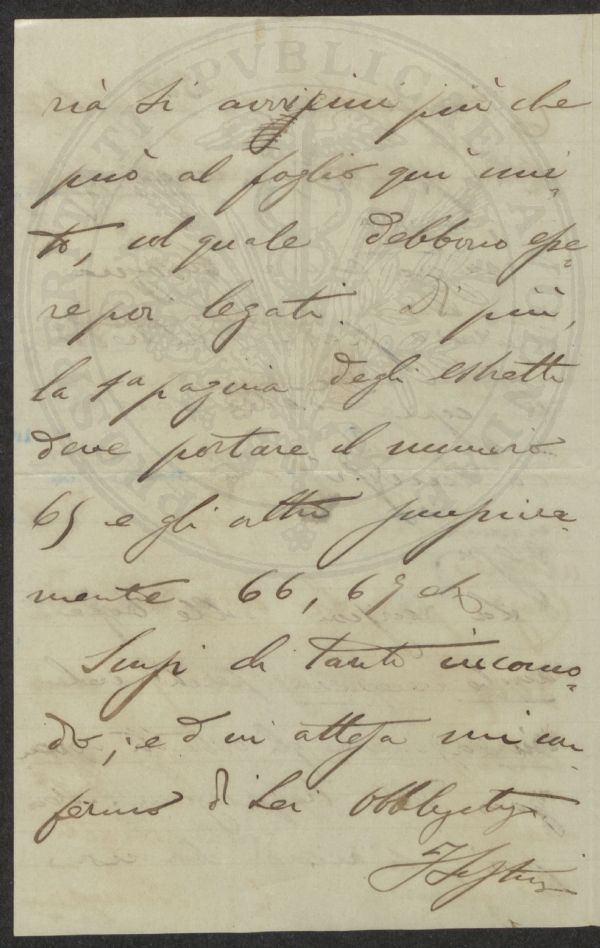 rià si avvicini più che
può al foglio quì uni-
to, col quale debbono esse-
re poi legati. Di più,
la 1a pagina degli estratti
deve portare il numero
65 e gli altri successiva-
mente 66, 67 etc
Scusi di tanto incomo-
do, ed in attesa mi con-
fermo di Lei Obbligatmo